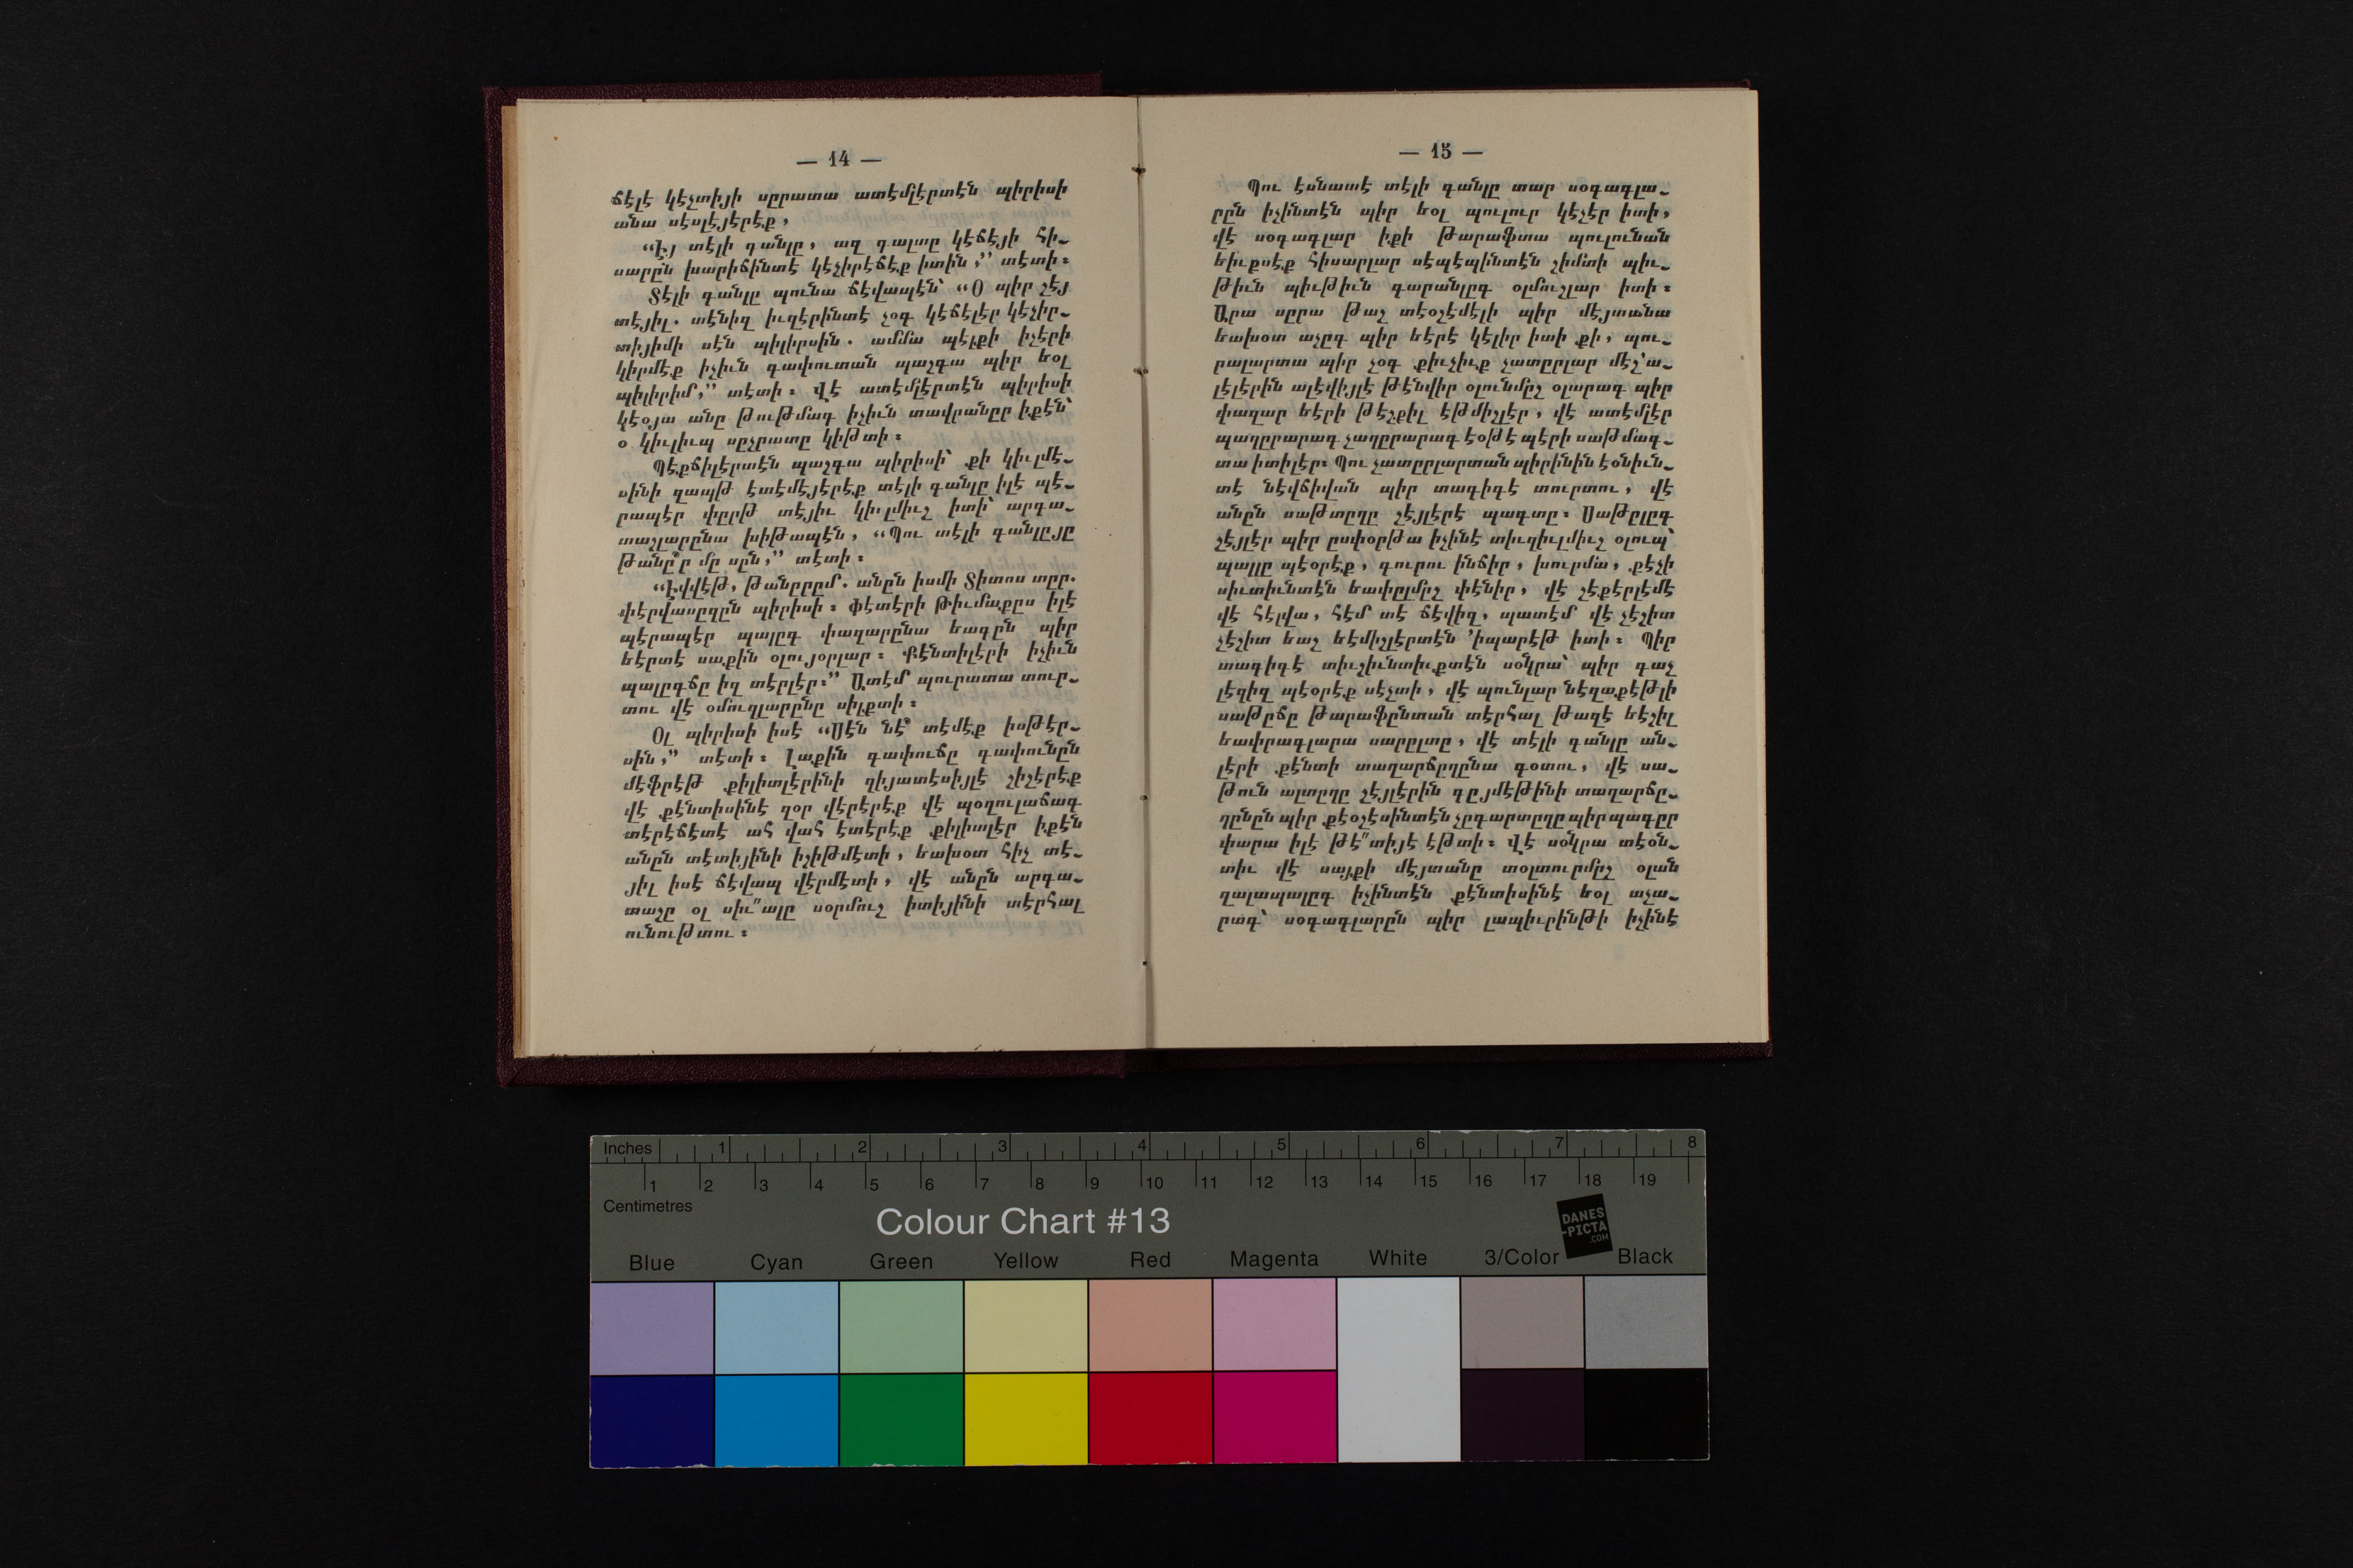 — 14 —
ճէլէ կէչտիյի սըրատա ատէմլէրտէն պիրիսի
անա սէսլէյէրէք,
“Էյ տէլի գանլը, ազ գալտը կէճէյի հի-
սարըն խարիճինտէ կէչիրէճէք իտին,” տէտի։
Տէլի գանլը պունա ճէվապէն՝ “Օ պիր շէյ
տէյիլ. տէնիզ իւզէրինտէ չօգ կէճէլէր կէչիր-
տիյիմի սէն պիլիրսին. ամմա պէլքի իչէրի
կիրմէք իչիւն գափուտան պաշգա պիր եօլ
պիլիրիմ,” տէտի։ Վէ ատէմլէրտէն պիրիսի
կէօյա անը թութմագ իչիւն տավրանըր իքէն՝
օ կիւլիւպ սըչրատը կիթտի։
Պէքճիլէրտէն պաշգա պիրիսի՝ քի կիւլմէ-
սինի զապթ էտէմէյէրէք տէլի գանլը իլէ պէ-
րապէր փըրթ տէյիւ կիւլմիւշ իտի՝ արգա-
տաշլարընա խիթապէն, “Պու տէլի գանլըյը
թանը՞ր մը սըն,” տէտի։
“Էվվէթ, թանըրըմ. անըն իսմի Տիտոս տըր.
փէրվասըզըն պիրիսի։ Ֆէտէրի Թիւմաքըս իլէ
պէրապէր պալըգ փազարընա եագըն պիր
եէրտէ սաքին օլույօրլար։ Քէնտիլէրի իչիւն
պալըգճը իզ տէրլէր։” Ատէմ պուրատա տուր-
տու վէ օմուզլարընը սիլքտի։
Օլ պիրիսի իսէ “Սէն նէ՞ տէմէք իսթէր-
սին,” տէտի։ Լաքին գափուճը գափունըն
մէֆրէթ քիլիտլէրինի զիյատէսիյլէ շիշէրէք
վէ քէնտիսինէ զօր վէրէրէք վէ պօզուլաճագ
տէրէճէտէ ահ վահ էտէրէք քիլիտլէր իքէն
անըն տէտիյինի իշիթմէտի, եախօտ հիչ տէ-
յիլ իսէ ճէվապ վէրմէտի, վէ անըն արգա-
տաշը օլ սիւ՞ալը սօրմուշ իտիյինի տէրհալ
ունութտու։
— 15 —
Պու էսնատէ տէլի գանլը տար սօգագլա-
րըն իչինտէն պիր եօլ պուլուր կէչէր իտի,
վէ սօգագլար իքի թարաֆտա պուլունան
եիւքսէք հիսարլար սէպէպինտէն շիմտի պիւ-
թիւն պիւթիւն գարանլըգ օլմուշլար իտի։
Արա սըրա թաշ տէօշէմէլի պիր մէյտանա
եախօտ աչըգ պիր եէրէ կէլիր իտի քի, պու-
րալարտա պիր չօգ քիւչիւք չատըրլար մէշ՚ա-
լէլէրին ալէվիյլէ թէնվիր օլունմըշ օլարագ պիր
փազար եէրի թէշքիլ էթմիշլէր, վէ ատէմլէր
պաղըրարագ չաղըրարագ էօթէ պէրի սաթմագ-
տա իտիլէր։ Պու չատըրլարտան պիրինին էօնիւն-
տէ նէվճիվան պիր տագիգէ տուրտու, վէ
անըն սաթտըղը շէյլէրէ պագտը։ Սաթըլըգ
շէյլէր պիր ըսփօրթա իչինէ տիւզիւլմիւշ օլուպ՝
պալլը պէօրէք, գուրու ինճիր, խուրմա, քէչի
սիւտիւնտէն եափըլմըշ փէնիր, վէ շէքէրլէմէ
վէ հէլվա, հէմ տէ ճէվիզ, պատէմ վէ չէշիտ
չէշիտ եաշ եէմիշլէրտէն ՚իպարէթ իտի։ Պիր
տագիգէ տիւշիւնտիւքտէն սօնրա՝ պիր գաչ
լէզիզ պէօրէք սէչտի, վէ պունլար նէզաքէթլի
սաթըճը թարաֆընտան տէրհալ թազէ եէշիլ
եափրագլարա սարըլտը, վէ տէլի գանլը ան-
լէրի քէնտի տաղարճըղընա գօտու, վէ սա-
թուն ալտըղը շէյլէրին գըյմէթինի տաղարճը-
ղընըն պիր քէօշէսինտէն չըգարտըղը պիր պագըր
փարա իլէ թէ՞տիյէ էթտի։ Վէ սօնրա տէօն-
տիւ վէ սայքի մէյտանը տօլտուրմըշ օլան
ղալապալըգ իչինտէն քէնտիսինէ եօլ աչա-
րագ՝ սօգագլարըն պիր լապիւրինթի իչինէ
Inches 1 2 3 4 5 6 7 8
1 2 3 4 5 6 7 8 9 10 11 12 13 14 15 16 17 18 19
Centimetres
Colour Chart #13
DANES
-PICTA
.COM
Blue Cyan Green Yellow Red Magenta White 3/Color Black